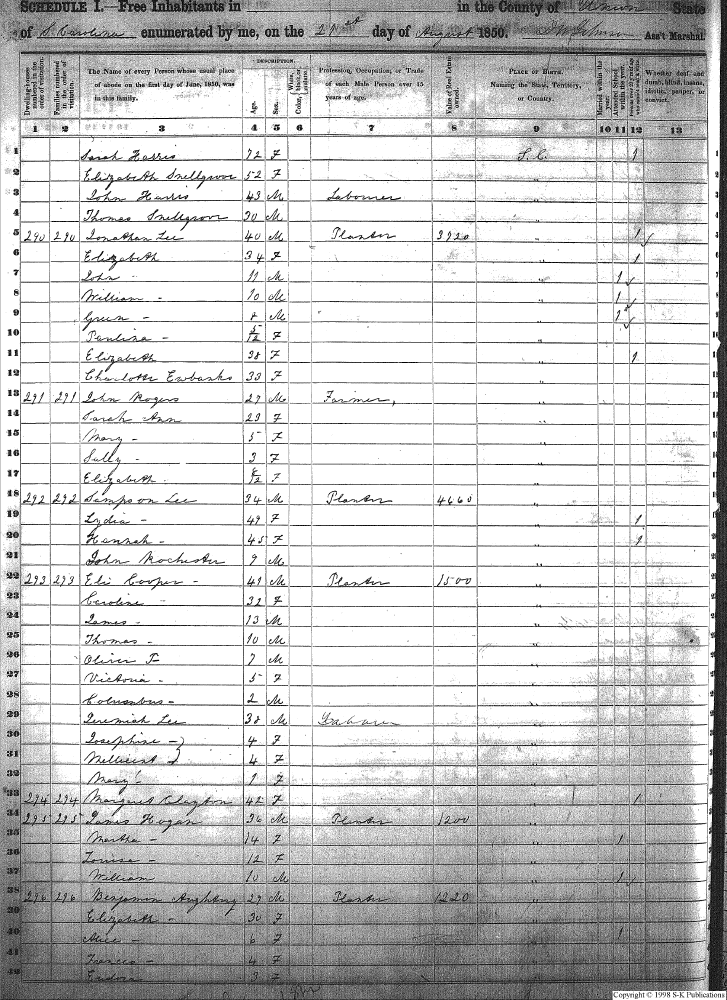 SCHEDULE I.—Free Inhabitants in in the County of State
of S. Carolina enumerated by me, on the 21st day of August 1850. Ass't Marshal.
Dwelling-houses numbered in the order of visitation.
Families numbered in the order of visitation.
The Name of every Person whose usual place of abode on the first day of June, 1850, was in this family.
DESCRIPTION.
Age.
Sex.
Color, White, black, or mulatto.
Profession, Occupation, or Trade of each Male Person over 15 years of age.
Value of Real Estate owned.
PLACE OF BIRTH.
Naming the State, Territory, or Country.
Married within the year.
Attended School within the year.
Whether deaf and dumb, blind, insane, idiotic, pauper, or convict.
1 2 3 4 5 6 7 8 9 10 11 12 13
1 Sarah Harris 72 F S. C. 1
2 Elizabeth Snellgrove 52 F "
3 John Harris 43 M Labourer "
4 Thomas Snellgrove 30 M "
5 290 290 Jonathan Lee 40 M Planter 3920 " 1
6 Elizabeth 34 F " 1
7 John - 11 M " 1
8 William - 10 M " 1
9 Green - 8 M " 1
10 Paulina - 5/12 F "
11 Elizabeth 38 F " 1
12 Charlotte Eubanks 33 F "
13 291 291 John Rogers 27 M Farmer, "
14 Sarah Ann 23 F "
15 Mary - 5 F "
16 Sally - 3 F "
17 Elizabeth F "
18 292 292 Sampson Lee 34 M Planter 4660 "
19 Lydia - 49 F " 1
20 Hannah - 45 F " 1
21 John Rochester 9 M "
22 293 293 Eli Cooper - 41 M Planter 1500 "
23 Caroline - 32 F "
24 James - 13 M "
25 Thomas - 10 M "
26 Oliver F - 7 M "
27 Victoria - 5 F "
28 Columbus - 2 M "
29 Jeremiah Lee 38 M "
30 Josephine - 4 F "
31 Millicent 4 F "
32 Mary 1 F "
33 294 294 Margaret Clayton 42 F " 1
34 295 295 James Hogan 36 M Planter 1200 "
35 Martha - 14 F " 1
36 Louisa - 12 F "
37 William 10 M " 1
38 296 296 Benjamin 29 M Planter 1220 "
39 Elizabeth - 30 F "
40 Alice - 6 F " 1
41 Frances - 4 F "
42 3 F
Copyright © 1998 S-K Publications